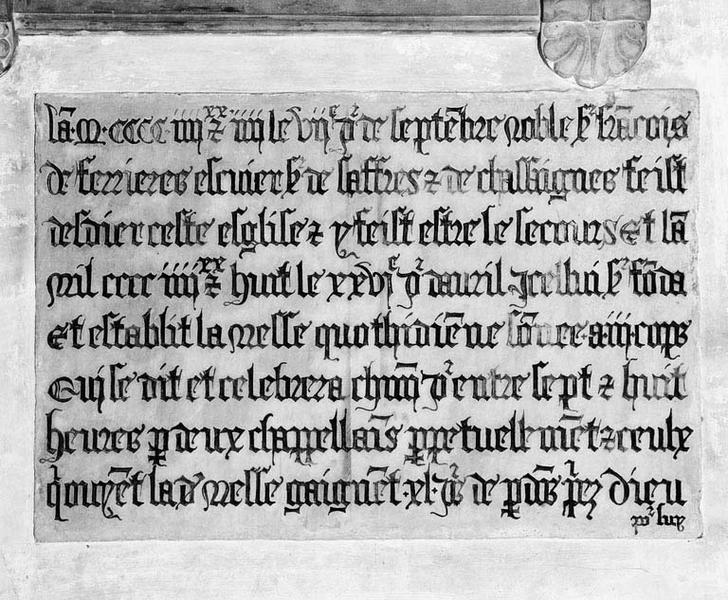 lā · m · cccc iiii xx ⁊ iiii le vii e io r de septēbre noble s r frācois
de ferrieres escuier s r de saffres ⁊ de chassaignes feist
desdier ceste esglise ⁊ y feist estre le secours Et lā
mil cccc iiii xx ⁊ huit le xxvi e io r dauril Jcellui s r fōda
Et establit la messe quothidiēne a iiii cops
Qui se dit et celebrera chun io r entre sept ⁊ huit
heures p deux chappellais ppetuellemēt ⁊ ceulx
q ouyēt lad messe gaignēt xl io r de pdōs pez dieu
po r eux